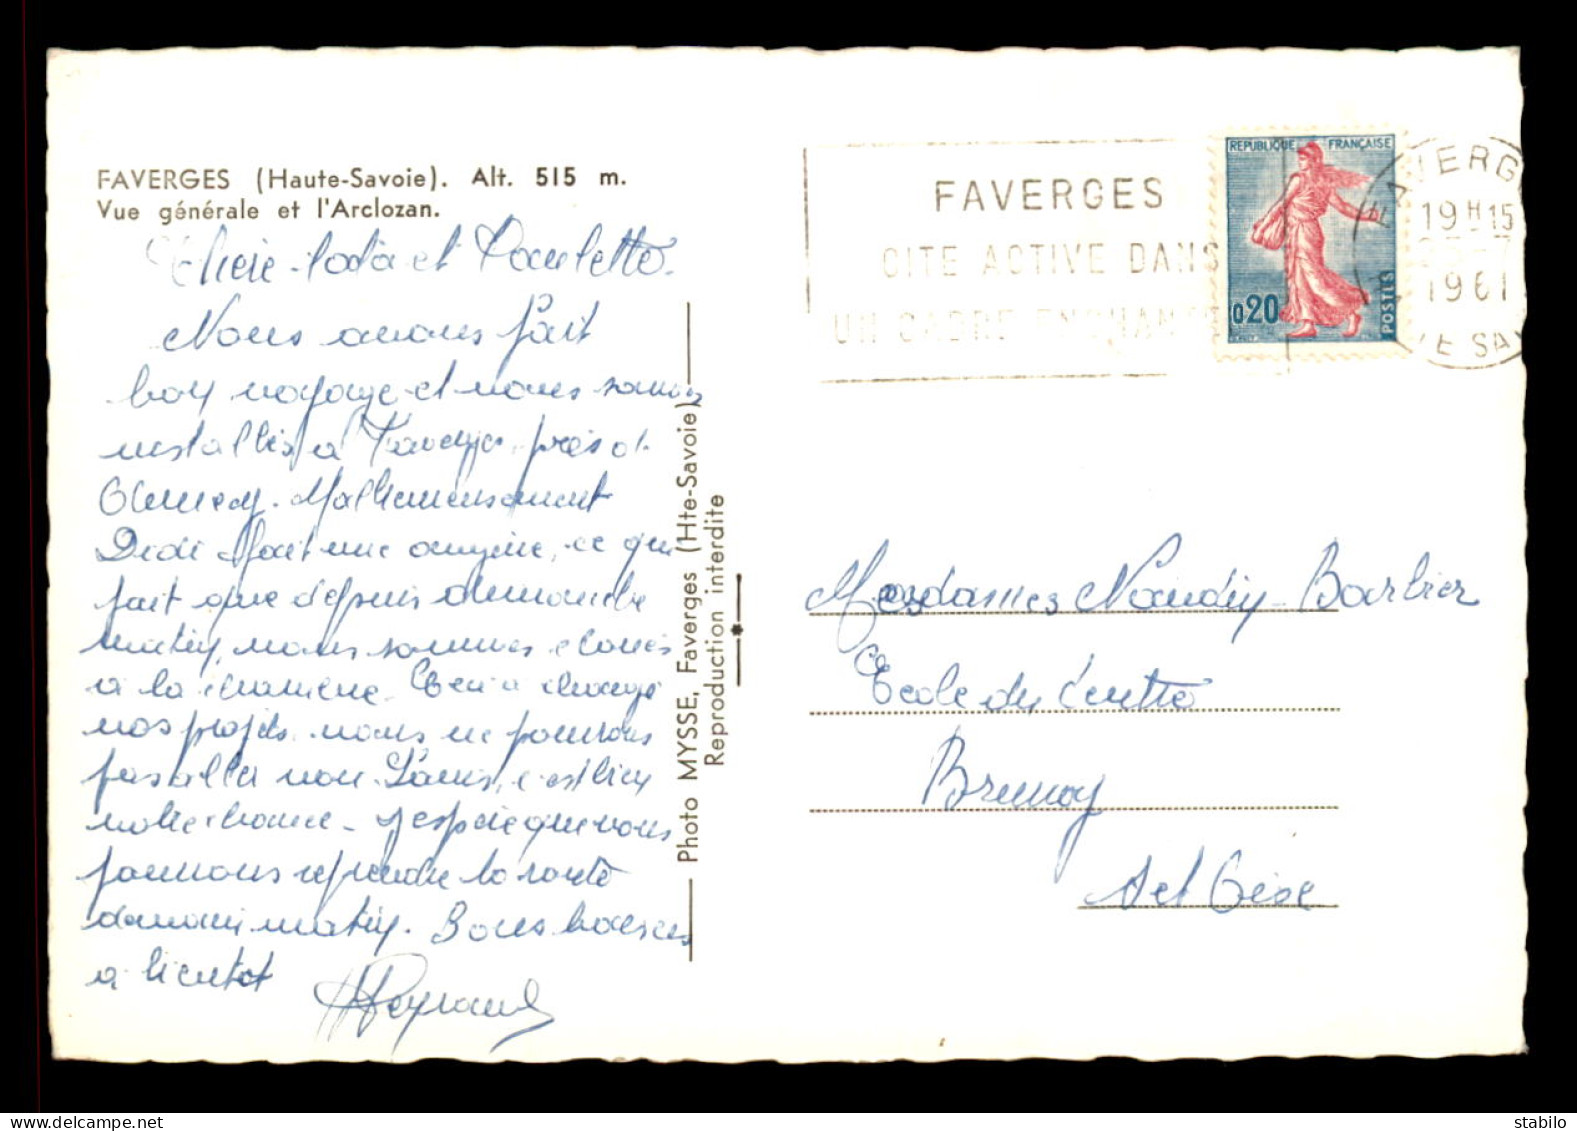 FAVERGES (Haute-Savoie). Alt. 515 m.
Vue générale et l'Arclozan.
Chère et Paulette.
Nous avons fait
bon voyage et nous sommes
installés à Faverges, près d'
Annecy. Malheureusement
Dédé fait une angine, ce qui
fait que depuis dimanche
matin, nous sommes cloués
à la chambre. Ceci a changé
nos projets, nous ne pourrons
pas aller voir, c'est bien
notre chance - J'espère que nous
pourrons reprendre la route
demain matin. Bons baisers
à bientôt
Peyraud
Photo MYSSE, Faverges (Hte-Savoie)
Reproduction interdite
FAVERGES
CITE ACTIVE DANS
UN CADRE ENCHAN
REPUBLIQUE FRANÇAISE
0,20
POSTES
FAVERG
19H15
1961
TE SA
Mesdames Naudin-Barbier
Ecole du Centre
Brunoy
S et Oise
www.delcampe.net
stabilo